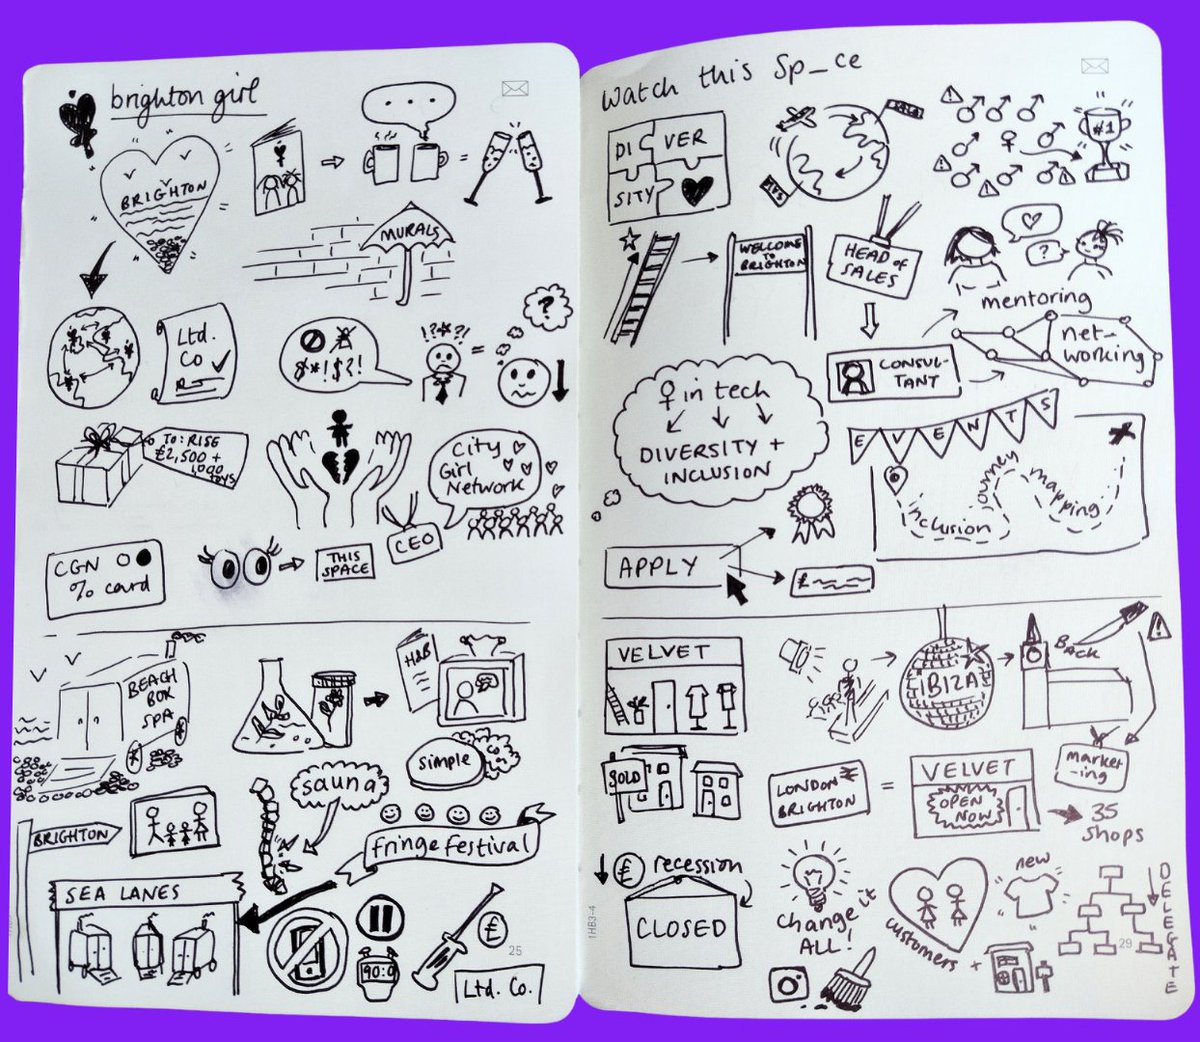 brighton girl
...
BRIGHTON
MURALS
Ltd.
Co
?
$*!$?!
!?*?!
TO: RISE
£2,500 +
1,000
TOYS
City
Girl
Network
CEO
CGN
% card
THIS
SPACE
BEACH
BOX
SPA
H&B
simple
sauna
BRIGHTON
fringe festival
SEA LANES
90:0
£
Ltd. Co.
25
Watch this Sp_ce
DI VER
SITY
#1
WELCOME
TO
BRIGHTON
HEAD of
SALES
?
mentoring
CONSUL-
TANT
net-
working
♀ in tech
DIVERSITY +
INCLUSION
EVENTS
inclusion journey mapping
APPLY
£
VELVET
IBIZA
BACK
!
market
-ing
SOLD
LONDON
BRIGHTON
=
VELVET
OPEN
NOW
35
shops
£ recession
CLOSED
change it
ALL!
customers
+
new
DELEGATE
29
1HB3-4